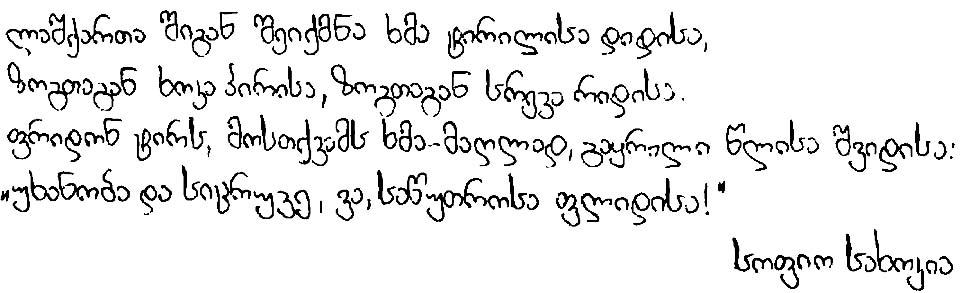 ლაშქართა შიგან შეიქმნა ხმა ტირილისა დიდისა,
ზოგთაგან ხოკა პირისა, ზოგთაგან სრევა რიდისა.
ფრიდონ ტირს, მოსთქვამს ხმა-მაღლად, გაყრილი წლისა შვიდისა:
"უხანობა და სიცრუვე, ვა, საწუთროსა ფლიდისა!"
სოფიო სახოკია